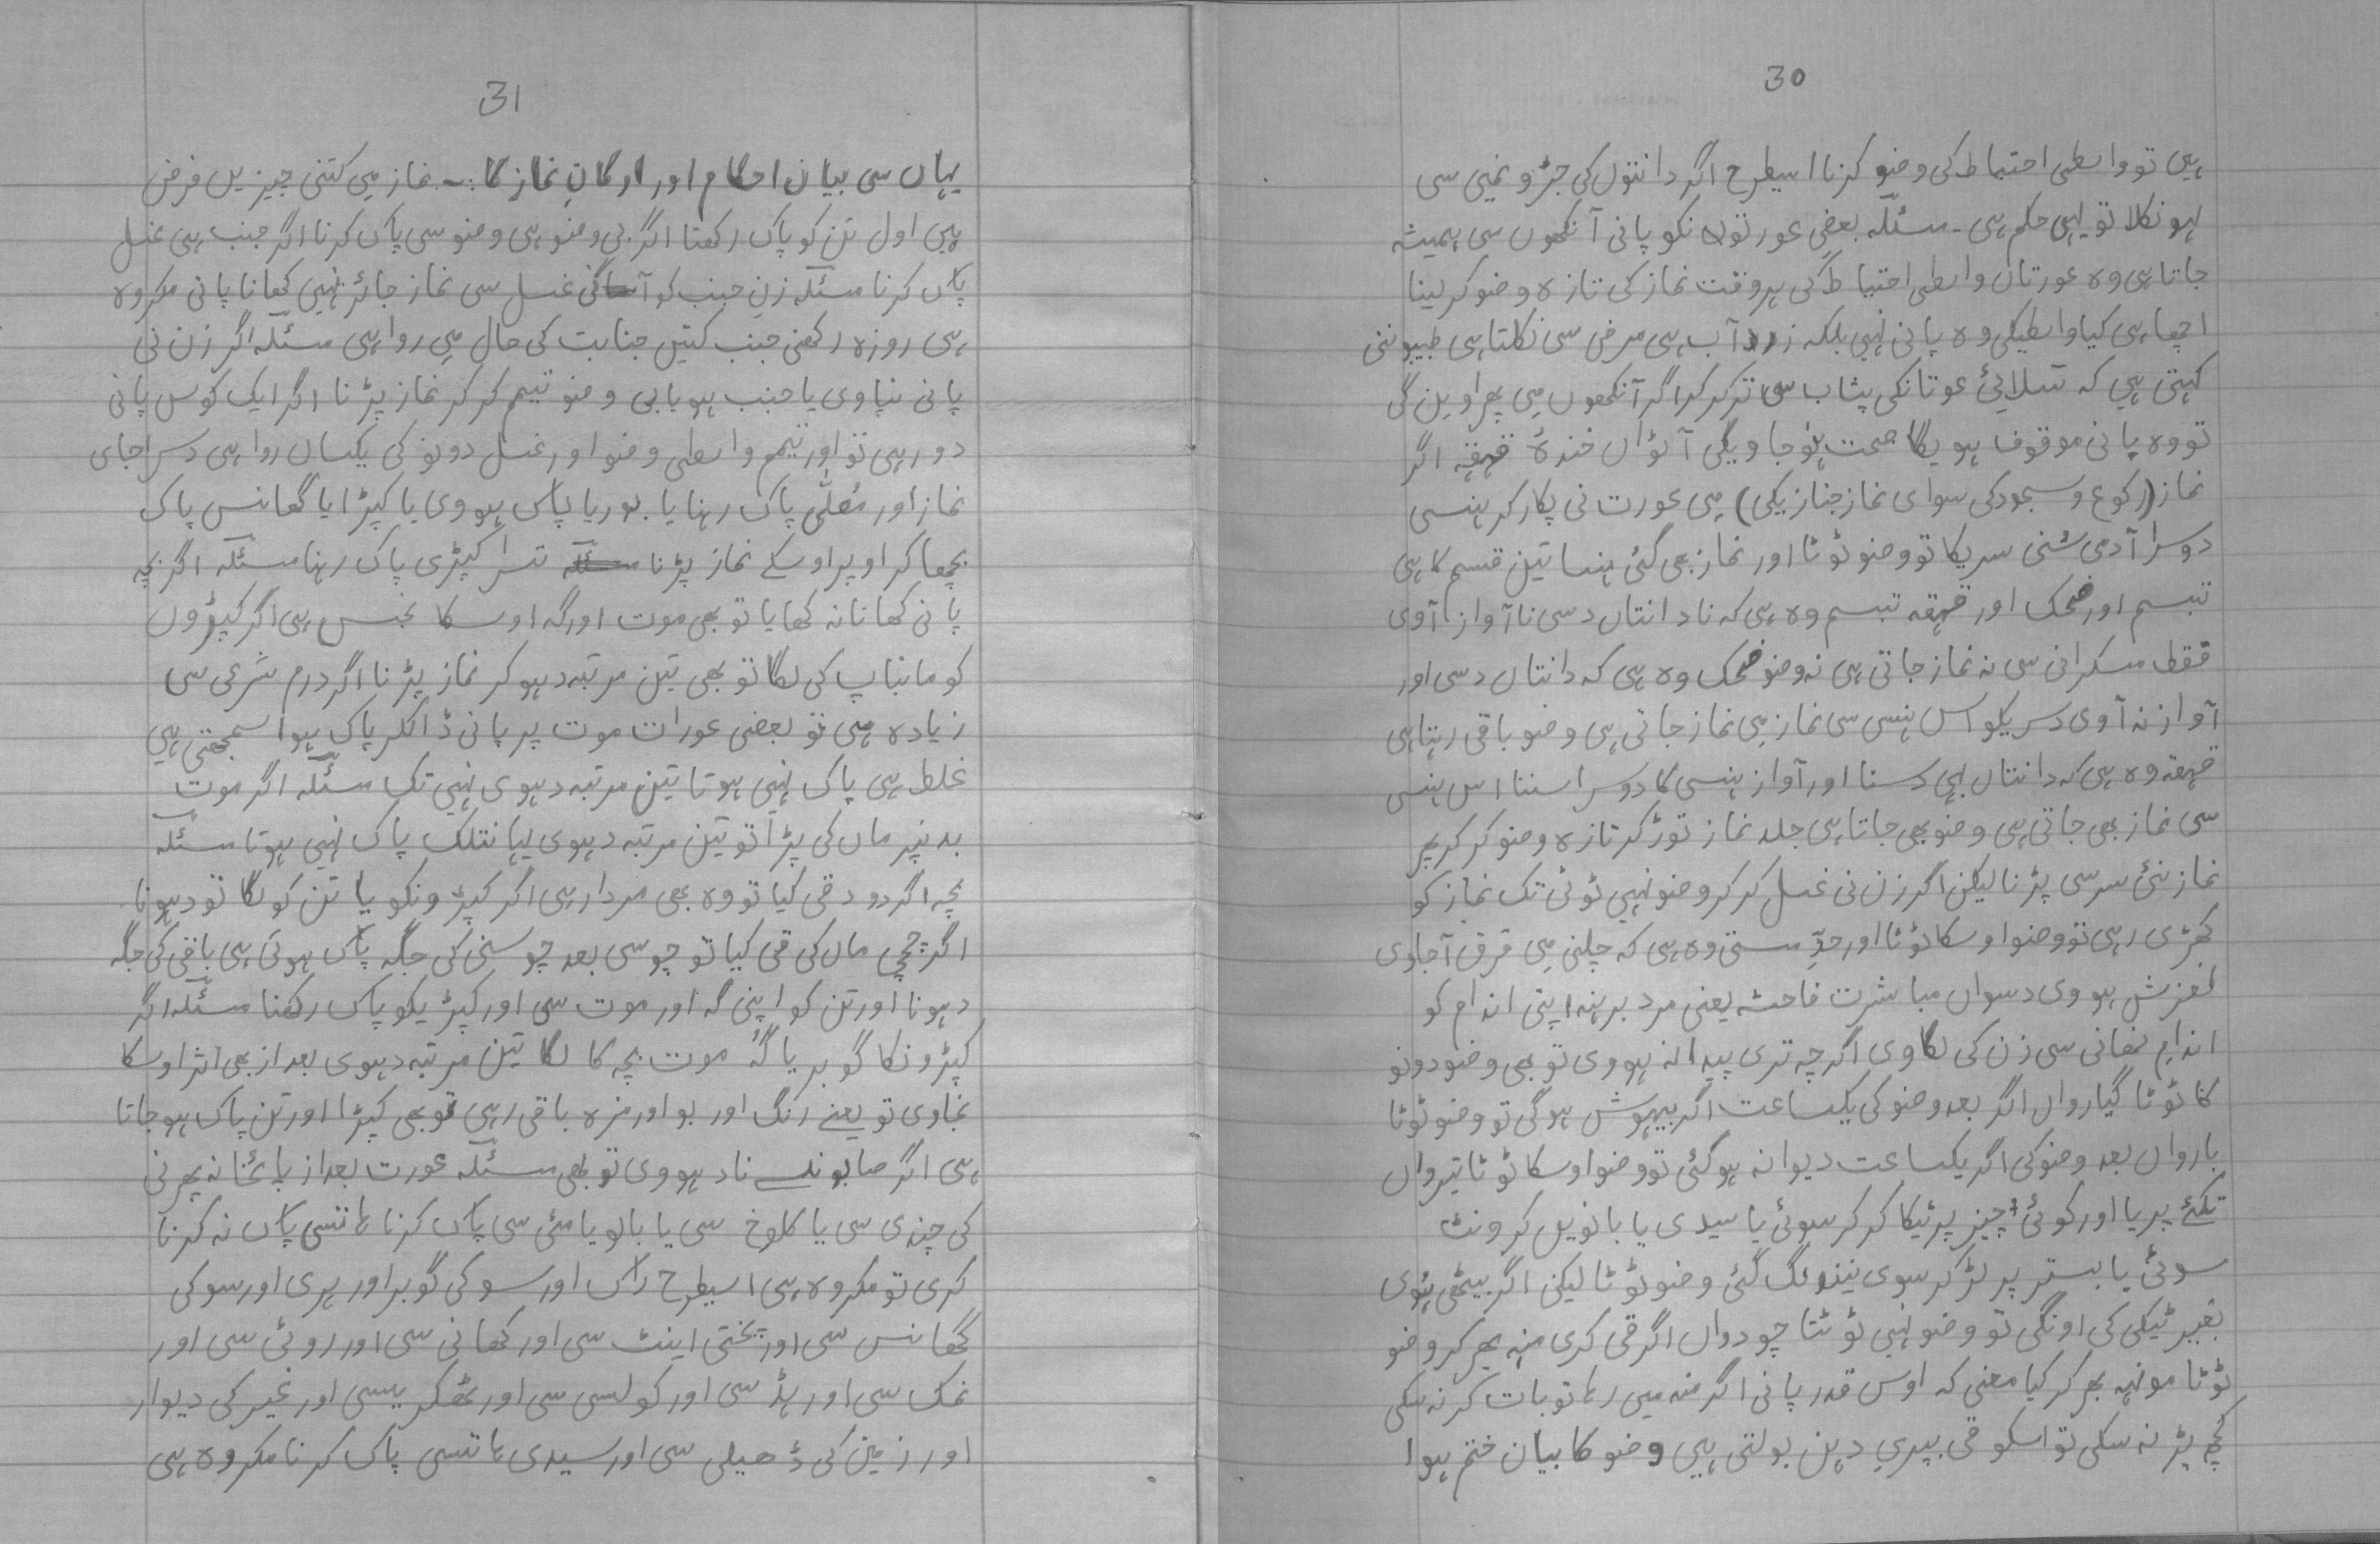 30
ہیں تو واسطی احتیاط کی وضو کرنا اسیطرح اگر دانتوں کی جڑو نمیں سی
لہو نکلا تو یہی حکم ہی۔ مسئلہ بعضی عورتوں نکو پانی آنکھوں سی ہمیشہ
جاتا ہی وہ عورتاں واسطی احتیاط کی ہر وقت نماز کی تازہ وضو کر لینا
اچھا ہی کیا واسطیکی وہ پانی نہیں بلکہ زرد آب ہی مرض سی نکلتا ہی طبیبو نی
کہتی ہیں کہ سلائی عوتانکی پشاب سی تر کر کر اگر آنکھوں میں پھراویں گی
تو وہ پانی موقوف ہویگا صحت ہو جاویگی آٹواں خندۂ قہقہ اگر
نماز (رکوع وسجودکی سوای نماز جنازیکی) میں عورت نی پکار کر ہنسی
دوسرا آدمی سُنی سریکا تو وضو ٹوٹا اور نماز بھی گئی ہنسا تین قسم کا ہی
تبسم اور ضحک اور قہقہ تبسم وہ ہی کہ نا دانتاں دسی نا آواز آوی
فقط مسکرانی سی نہ نماز جاتی ہی نہ وضو ضحک وہ ہی کہ دانتاں دسی اور
آواز نہ آوی دسریکو اس ہنسی سی نماز میں نماز جاتی ہی وضو باقی رہتا ہی
قہقہ وہ ہی کہ دانتاں بھی دسنا اور آواز ہنسی کا دوسرا سننا اس ہنسی
سی نماز بھی جاتی ہی وضو بھی جاتا ہی جلد نماز توڑ کر تازہ وضو کر کر پھر
نماز نئی سرسی پڑنا لیکن اگر زن نی غسل کر کر وضو نہیں ٹوٹی تک نماز کو
کھڑی رہی تو وضو اوسکا ٹوٹا اور حدِّ مستی وہ ہی کہ چلنی میں فرق آجاوی
لغزش ہووی دسواں مباشرت فاحشہ یعنی مرد برہنہ اپنی اندام کو
اندام نہانی سی زن کی لگاوی اگرچہ تری پیدا نہ ہووی تو بھی وضو دونو
کا ٹوٹا گیارواں اگر بعد وضو کی یکساعت اگر بیہوش ہو گی تو وضو ٹوٹا
بارواں بعد وضو کی اگر یکساعت دیوانہ ہو گئی تو وضو اوسکا ٹوٹا تیرواں
تکئے پر یا اور کوئی چیز پر ٹیکا کر کر سوئی یا سیدی یا بانویں کرونٹ
سوئی یا بستر پر لڑ کر سوی نیند لگ گئی وضو ٹوٹا لیکن اگر بیٹھی ہُوی
بغیر ٹیکی کی اونگی تو وضو نہیں ٹوٹتا چودواں اگر قی کری منہ بھر کر وضو
ٹوٹا مونہہ بھر کر کیا معنی کہ اوس قدر پانی اگر منہ میں رہا تو بات کر نہ سکی
کچھ پڑ نہ سکی تو اسکو قی بپری دہن بولتی ہیں وضو کا بیان ختم ہوا
31
یہاں سی بیان احکام اور ارکانِ نماز کا :۔ نماز میں کتنی چیزیں فرض
ہیں اول تن کو پاک رکھنا اگر بی وضو ہی وضو سی پاک کرنا اگر جنب ہی غسل
پاک کرنا مسئلہ زنِ جنب کو غسل سی نماز جائز نہیں کھانا پانی مکروہ
ہی روزہ رکھنی جنب کتیں جنابت کی حال میں روا ہی مسئلہ اگر زن نی
پانی نپاوی یا جنب ہو یا بی وضو تیمم کر کر نماز پڑنا اگر ایک کوس پانی
دور ہی تو اور تیمم واسطی وضو اور غسل دونو کی یکساں روا ہی دسرا جای
نماز اور مُصلّٰی پاک رہنا یا بوریا پاس ہووی یا کپڑا یا گھانس پاک
بچھا کر اوپر اوسکے نماز پڑنا تسرا کپڑی پاک رہنا مسئلہ اگر بچہ
پانی کھانا نہ کھایا تو بھی موت اور گہ اوسکا نجس ہی اگر کپڑوں
کو مانباپ کی لگا تو بھی تین مرتبہ دہو کر نماز پڑنا اگر درم شرعی سی
زیادہ ہی تو بعضی عورات موت پر پانی ڈالکر پاک ہوا سمجھتی ہیں
غلط ہی پاک نہیں ہوتا تین مرتبہ دہوی نہیں تک مسئلہ اگر موت
بدنپر ماں کی پڑا تو تین مرتبہ دہوی لہانتلک پاک نہیں ہوتا مسئلہ
بچہ اگر دود قی کیا تو وہ بھی مردار ہی اگر کپڑونکو یا تن کو لگا تو دہونا
اگر چچی ماں کی قی کیا تو چوسی بعد چوسنی کی جگہ پاک ہوتی ہی باقی کی جگہ
دہونا اور تن کو اپنی گہ اور موت سی اور کپڑیکو پاک رکھنا مسئلہ اگر
کپڑونکا گوبر یا گُہ موت بچہ کا لگا تین مرتبہ دہوی بعد از بھی اثر اوسکا
نجاوی تو یعنے رنگ اور بو اور مزہ باقی رہی تو بھی کپڑا اور تن پاک ہو جاتا
ہی اگر صابونسے ناد ہووی تو بھی مسئلہ عورت بعد از پائخانہ پھرنی
کی چندی سی یا کلوخ سی یا بالو یا مٹی سی پاک کرنا ہاتسی پاک نہ کرنا
کری تو مکروہ ہی اسیطرح راک اور سوکی گوبر اور ہری اور سوکی
گھانس سی اور پختی اینٹ سی اور کھانی سی اور روئی سی اور
نمک سی اور ہڈ سی اور کولسی سی اور ٹھکریسی اور غیر کی دیوار
اور زمین کی ڈھیلی سی اور سیدی ہاتسی پاک کرنا مکروہ ہی